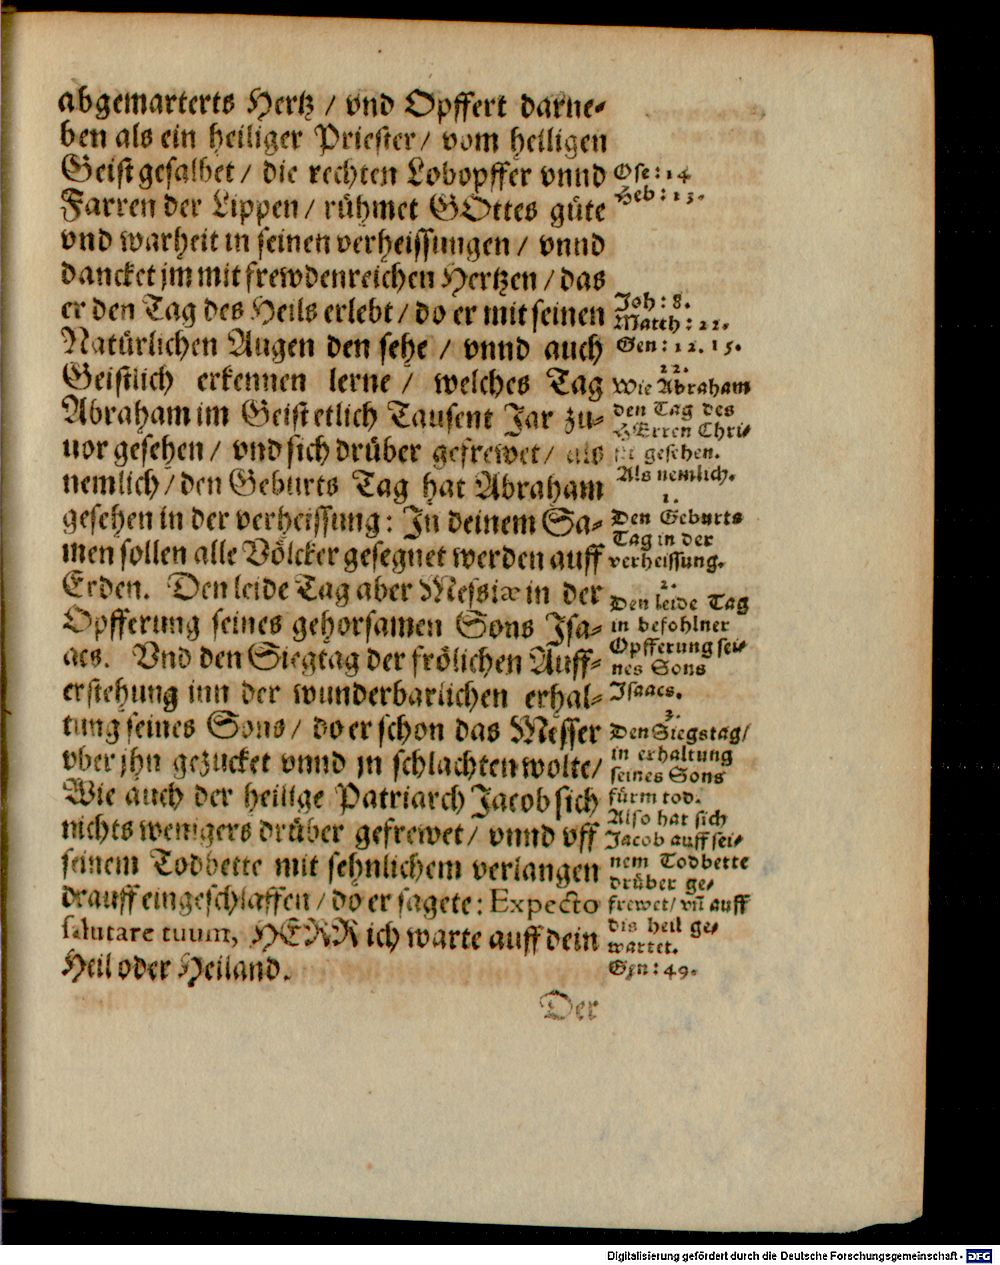 abgemarterts Hertz / vnd Opffert darne-
ben als ein heiliger Priester / vom heiligen
Geist gesalbet / die rechten Lobopffer vnnd
Farren der Lippen / rühmet GOttes güte
vnd warheit in seinen verheissungen / vnnd
dancket jm mit frewdenreichen Hertzen / das
er den Tag des Heils erlebt / do er mit seinen
Natürlichen Augen den sehe / vnnd auch
Geistlich erkennen lerne / welches Tag
Abraham im Geist etlich Tausent Jar zu-
uor gesehen / vnd sich drüber gefrewet / als
nemlich / den Geburts Tag hat Abraham
gesehen in der verheissung: In deinem Sa-
men sollen alle Völcker gesegnet werden auff
Erden. Den leide Tag aber Messiæ in der
Opfferung seines gehorsamen Sons Isa-
acs. Vnd den Siegtag der frölichen Auff-
erstehung inn der wunderbarlichen erhal-
tung seines Sons / do er schon das Messer
vber jhn gezucket vnnd jn schlachten wolte /
Wie auch der heilige Patriarch Jacob sich
nichts wenigers drüber gefrewet / vnnd vff
seinem Todbette mit sehnlichem verlangen
drauff eingeschlaffen / do er sagete: Expecto
salutare tuum, HERR ich warte auff dein
Heil oder Heiland.
Der
Ose: 14
Heb: 13.
Joh: 8.
Matth: 22.
Gen: 12. 15.
22.
Wie Abraham
den Tag des
HErren Chri-
sti gesehen.
Als nemlich.
1.
Den Geburts
Tag in der
verheissung.
2.
Den leide Tag
in befohlner
Opfferung sei-
nes Sons
Isaacs.
3.
Den Siegstag /
in erhaltung
seines Sons
fürm tod.
Also hat sich
Jacob auff sei-
nem Todbette
drüber ge-
frewet / vñ auff
dis heil ge-
wartet.
Gen: 49.
Digitalisierung gefördert durch die Deutsche Forschungsgemeinschaft - DFG